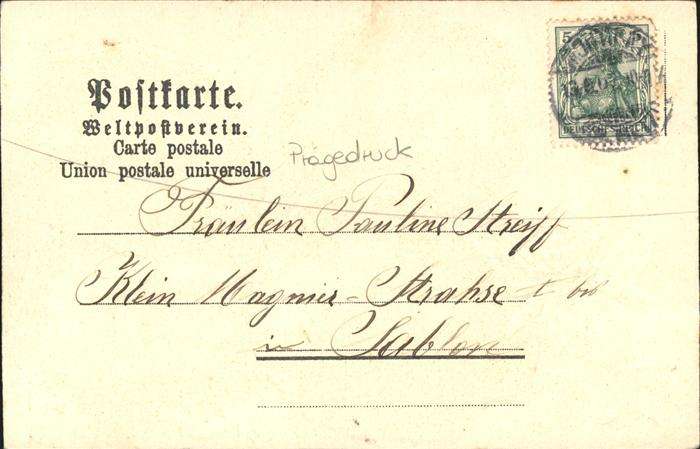 Postkarte.
Weltpostverein.
Carte postale
Union postale universelle
Prägedruck
5
DEUTSCHES REICH
Fräulein Pauline Streiff
Klein Magnier-Strahse
in Sablon